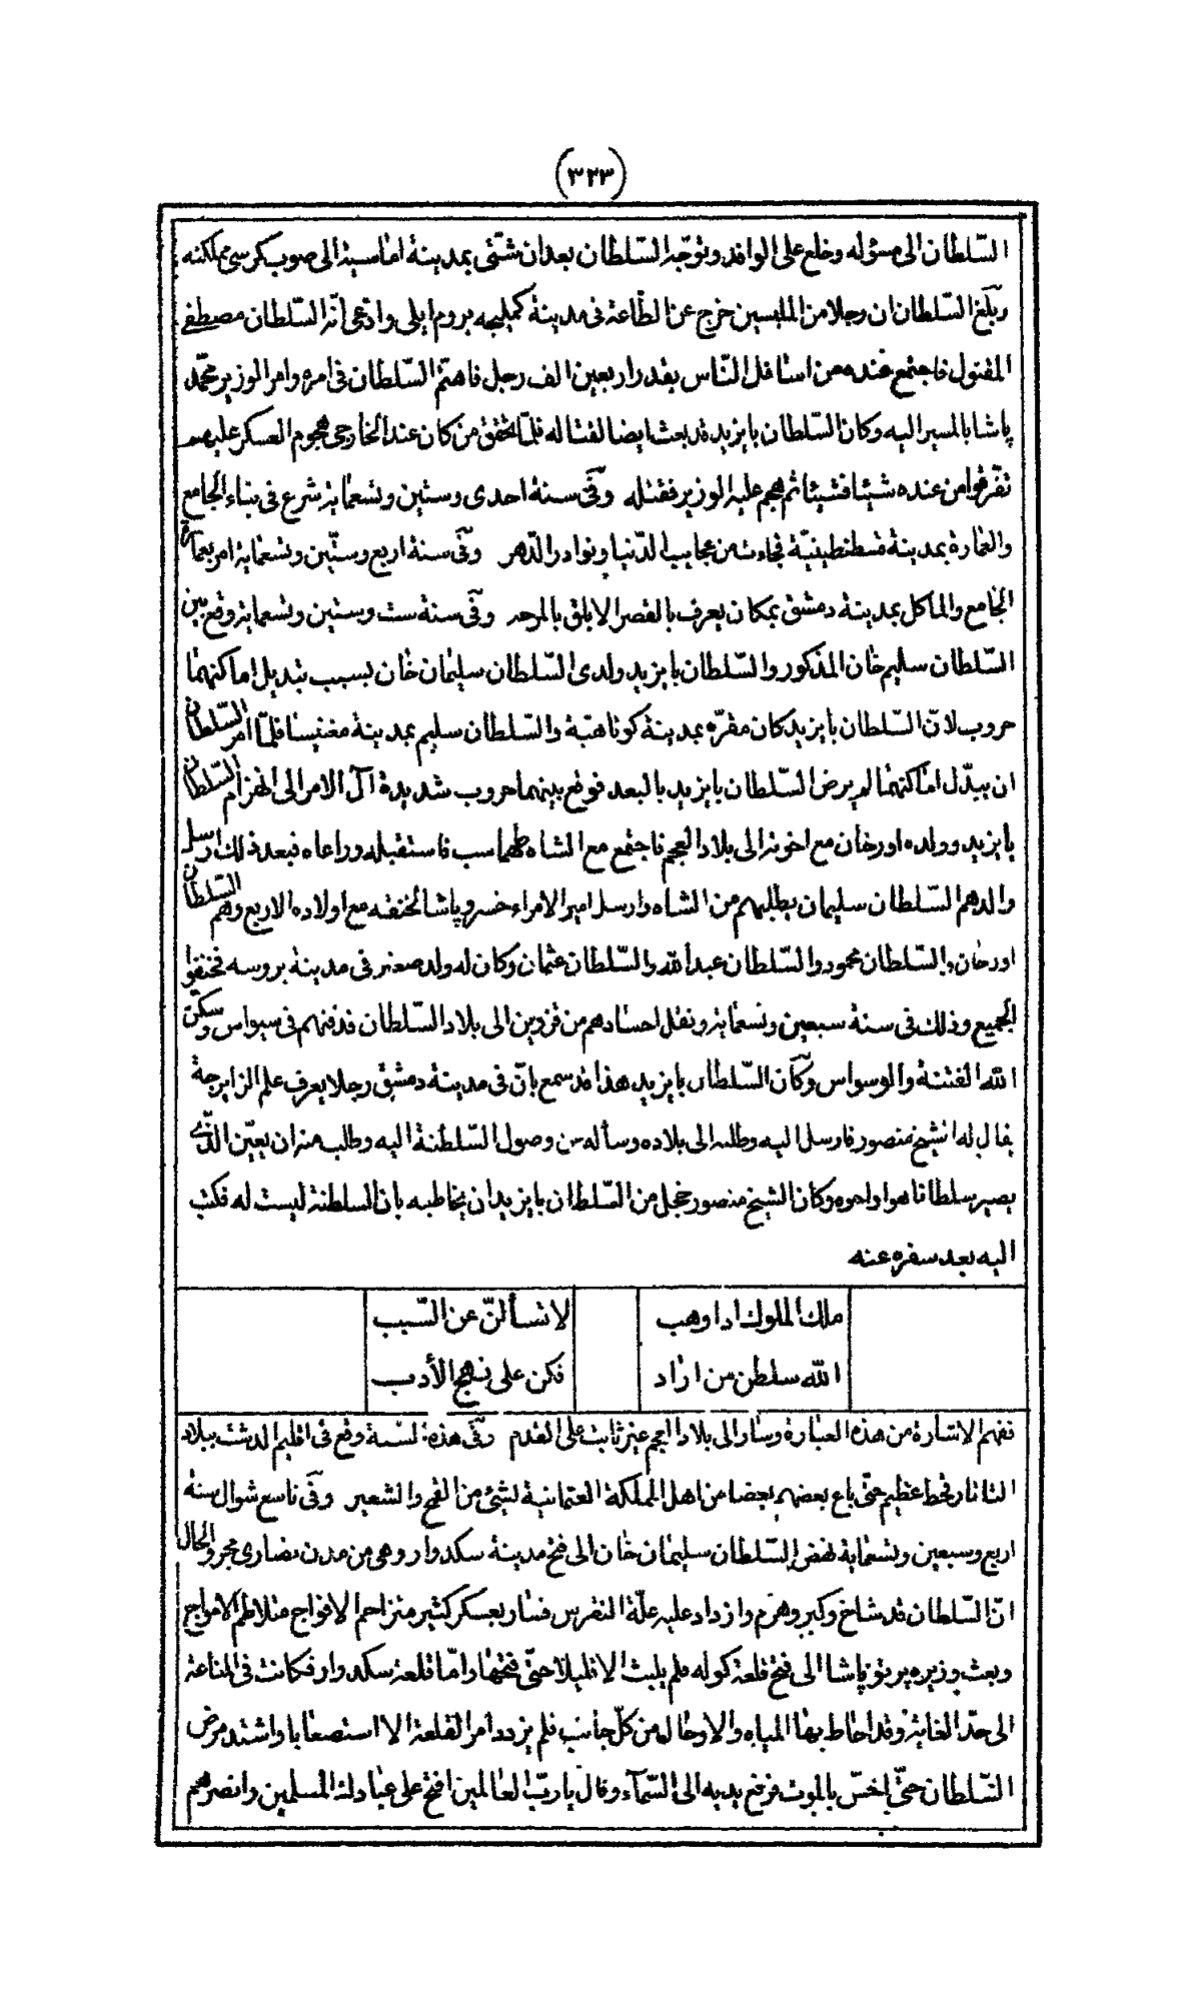 (٣٢٣)
السّلطان الى مسؤله وخلع على الوافد وتوجّه السّلطان بعد ان شتّى بمدينة اماسية الى صوب كرسى مملكته
وبلغ السّلطان ان رجلا من الملبسين خرج عن الطّاعة فى مدينة كمليجه بروم ايلى وادّعى انّه السّلطان مصطفى
المقتول فاجتمع عنده من اسافل النّاس بقدر اربعين الف رجل فاهتمّ السّلطان فى امره وامر الوزير محمّد
پاشا بالمسير اليه وكان السّلطان بايزيد قد بعث ايضا لقتاله فلمّا تحقق من كان عند الخارجى هجوم العسكر عليهم
تفرّقوا من عنده شيئا فشيئا ثم هجم عليه الوزير فقتله وفى سنة احدى وستين وتسعماية شرع فى بناء الجامع
والعمارة بمدينة قسطنطينيّة فجاءت من عجايب الدّنيا ونوادر الدّهر وفى سنة اربع وستّين وتسعماية امر بعمارة
الجامع والماكل بمدينة دمشق بمكان يعرف بالقصر الابلق بالمرجه وفى سنة ست وستين وتسعماية وقع بين
السّلطان سليم خان المذكور والسّلطان بايزيد ولدى السّلطان سليمان خان بسبب تبديل اماكنهما
حروب لانّ السّلطان بايزيد كان مقرّه بمدينة كوتاهية والسّلطان سليم بمدينة مغنيسا فلمّا امر السّلطان
ان يبدّل اماكنهما لم يرض السّلطان بايزيد بالبعد فوقع بينهما حروب شديدة آل الامر الى انهزام السّلطان
بايزيد وولده اورخان مع اخوته الى بلاد العجم فاجتمع مع الشاه طهماسب فاستقبله وراعاه فبعد ذلك ارسل
والدهم السّلطان سليمان يطلبهم من الشاه وارسل امير الامراء خسرو پاشا لخنقه مع اولاده الاربع وهم السّلطان
اورخان والسّلطان محمود والسّلطان عبد الله والسّلطان عثمان وكان له ولد صغير فى مدينة بروسه فخنقوا
الجميع وذلك فى سنة سبعين وتسعماية ونقل اجسادهم من قزوين الى بلاد السّلطان فدفنهم فى سيواس وسكن
الله الفتنة والوسواس وكان السّلطان بايزيد هذا قد سمع بانّ فى مدينة دمشق رجلا يعرف علم الزايرجة
يقال له الشيخ منصور فارسل اليه وطلبه الى بلاده وسأله عن وصول السّلطنة اليه وطلب منه ان يعيّن الّذى
يصير سلطانا هو او اخوه وكان الشيخ منصور خجل من السّلطان بايزيد ان يخاطبه بان السلطنة ليست له فكتب
اليه بعد سفره عنه
ملك الملوك اذا وهب لا تسألنّ عن السّبب
الله سلطن من اراد فكن على نهج الأدب
ففهم الاشارة من هذه العبارة وسار الى بلاد العجم غير ثابت على القدم وفى هذه السّنة وقع فى اقليم الدشت ببلاد
التاتار قحط عظيم حتّى باع بعضهم بعضا من اهل المملكة العثمانية لشئ من القمح والشعير وفى تاسع شوال سنة
اربع وسبعين وتسعماية نهض السّلطان سليمان خان الى فتح مدينة سكدوار وهى من مدن نصارى مجر والحال
انّ السّلطان قد شاخ وكبر وهرم وازداد عليه علّة النقرس فسار بعسكر كثير متزاحم الافواج متلاطم الامواج
وبعث وزيره پرتو پاشا الى فتح قلعة كوله فلم يلبث الا قليلا حتّى فتحها وامّا قلعة سكدوار فكانت فى المناعة
الى حدّ الغاية وقد احاط بها المياه والاوحال من كلّ جانب فلم يزدد امر القلعة الا استصعابا واشتد مرض
السّلطان حتّى احسّ بالموت فرفع يديه الى السّمآء وقال يا ربّ العالمين افتح على عبادك المسلمين وانصرهم